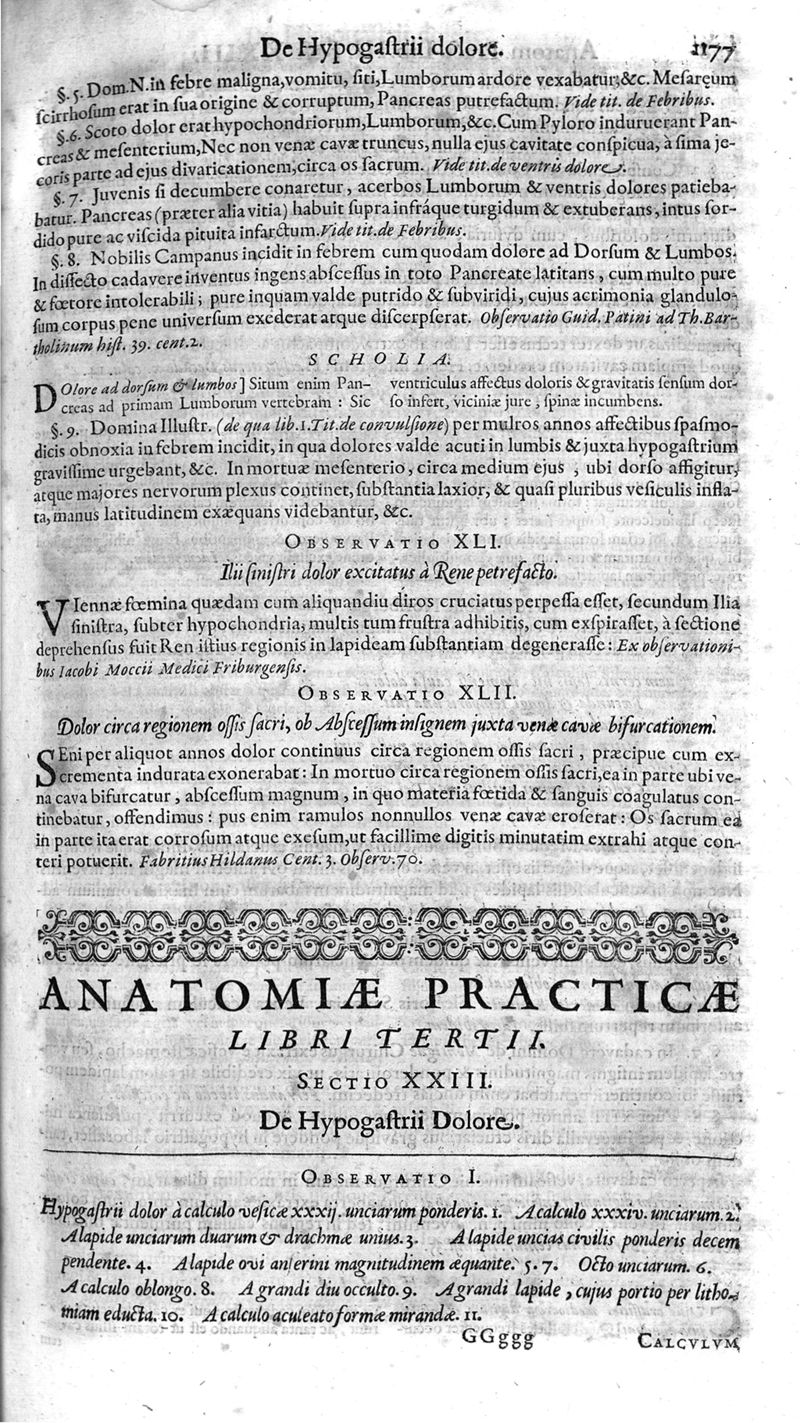 De Hypogaſtrii dolore. 1177
§. 5. Dom. N. in febre maligna, vomitu, ſiti, Lumborum ardore vexabatur, &c. Meſaręum
ſcirrhoſum erat in ſua origine & corruptum, Pancreas putrefactum. Vide tit. de Febribus.
§. 6. Scoto dolor erat hypochondriorum, Lumborum, &c. Cum Pyloro induruerant Pan-
creas & meſenterium, Nec non venæ cavæ truncus, nulla ejus cavitate conſpicua, à ſima je-
coris parte ad ejus divaricationem, circa os ſacrum. Vide tit. de ventris dolore.
§. 7. Juvenis ſi decumbere conaretur, acerbos Lumborum & ventris dolores patieba-
batur. Pancreas (præter alia vitia) habuit ſupra infráque turgidum & extuberans, intus ſor-
dido pure ac viſcida pituita infarctum. Vide tit. de Febribus.
§. 8. Nobilis Campanus incidit in febrem cum quodam dolore ad Dorſum & Lumbos.
In diſſecto cadavere inventus ingens abſceſſus in toto Pancreate latitans, cum multo pure
& fœtore intolerabili; pure inquam valde putrido & ſubviridi, cujus acrimonia glandulo-
ſum corpus pene univerſum exederat atque diſcerpſerat. Obſervatio Guid. Patini ad Th. Bar-
tholinum hiſt. 39. cent. 2.
SCHOLIA.
DOlore ad dorſum & lumbos] Situm enim Pan-
creas ad primam Lumborum vertebram: Sic
ventriculus affectus doloris & gravitatis ſenſum dor-
ſo infert, viciniæ jure, ſpinæ incumbens.
§. 9. Domina Illuſtr. (de qua lib. 1. Tit. de convulſione) per mulros annos affectibus ſpaſmo-
dicis obnoxia in febrem incidit, in qua dolores valde acuti in lumbis & juxta hypogaſtrium
graviſſime urgebant, &c. In mortuæ meſenterio, circa medium ejus, ubi dorſo affigitur,
atque majores nervorum plexus continet, ſubſtantia laxior, & quaſi pluribus veſiculis infla-
ta, manus latitudinem exæquans videbantur, &c.
OBSERVATIO XLI.
Ilii ſiniſtri dolor excitatus à Rene petrefacto.
VIennæ fœmina quædam cum aliquandiu diros cruciatus perpeſſa eſſet, ſecundum Ilia
ſiniſtra, ſubter hypochondria, multis tum fruſtra adhibitis, cum exſpiraſſet, à ſectione
deprehenſus fuit Ren iſtius regionis in lapideam ſubſtantiam degeneraſſe: Ex obſervationi-
bus Iacobi Moccii Medici Friburgenſis.
OBSERVATIO XLII.
Dolor circa regionem oſſis ſacri, ob Abſceſſum inſignem juxta venæ cavæ bifurcationem.
SEni per aliquot annos dolor continuus circa regionem oſſis ſacri, præcipue cum ex-
crementa indurata exonerabat: In mortuo circa regionem oſſis ſacri, ea in parte ubi ve-
na cava bifurcatur, abſceſſum magnum, in quo materia fœtida & ſanguis coagulatus con-
tinebatur, offendimus: pus enim ramulos nonnullos venæ cavæ eroſerat: Os ſacrum ea
in parte ita erat corroſum atque exeſum, ut facillime digitis minutatim extrahi atque con-
teri potuerit. Fabritius Hildanus Cent. 3. Obſerv. 70.
ANATOMIÆ PRACTICÆ
LIBRI TERTII.
SECTIO XXIII.
De Hypogaſtrii Dolore.
OBSERVATIO I.
Hypogaſtrii dolor à calculo veſicæ xxxij. unciarum ponderis. 1. A calculo xxxiv. unciarum. 2.
A lapide unciarum duarum & drachmæ unius. 3. A lapide uncias civilis ponderis decem
pendente. 4. A lapide ovi anſerini magnitudinem æquante. 5. 7. Octo unciarum. 6.
A calculo oblongo. 8. A grandi diu occulto. 9. A grandi lapide, cujus portio per litho-
miam educta. 10. A calculo aculeato formæ mirandæ. 11.
GGggg CALCVLVM,